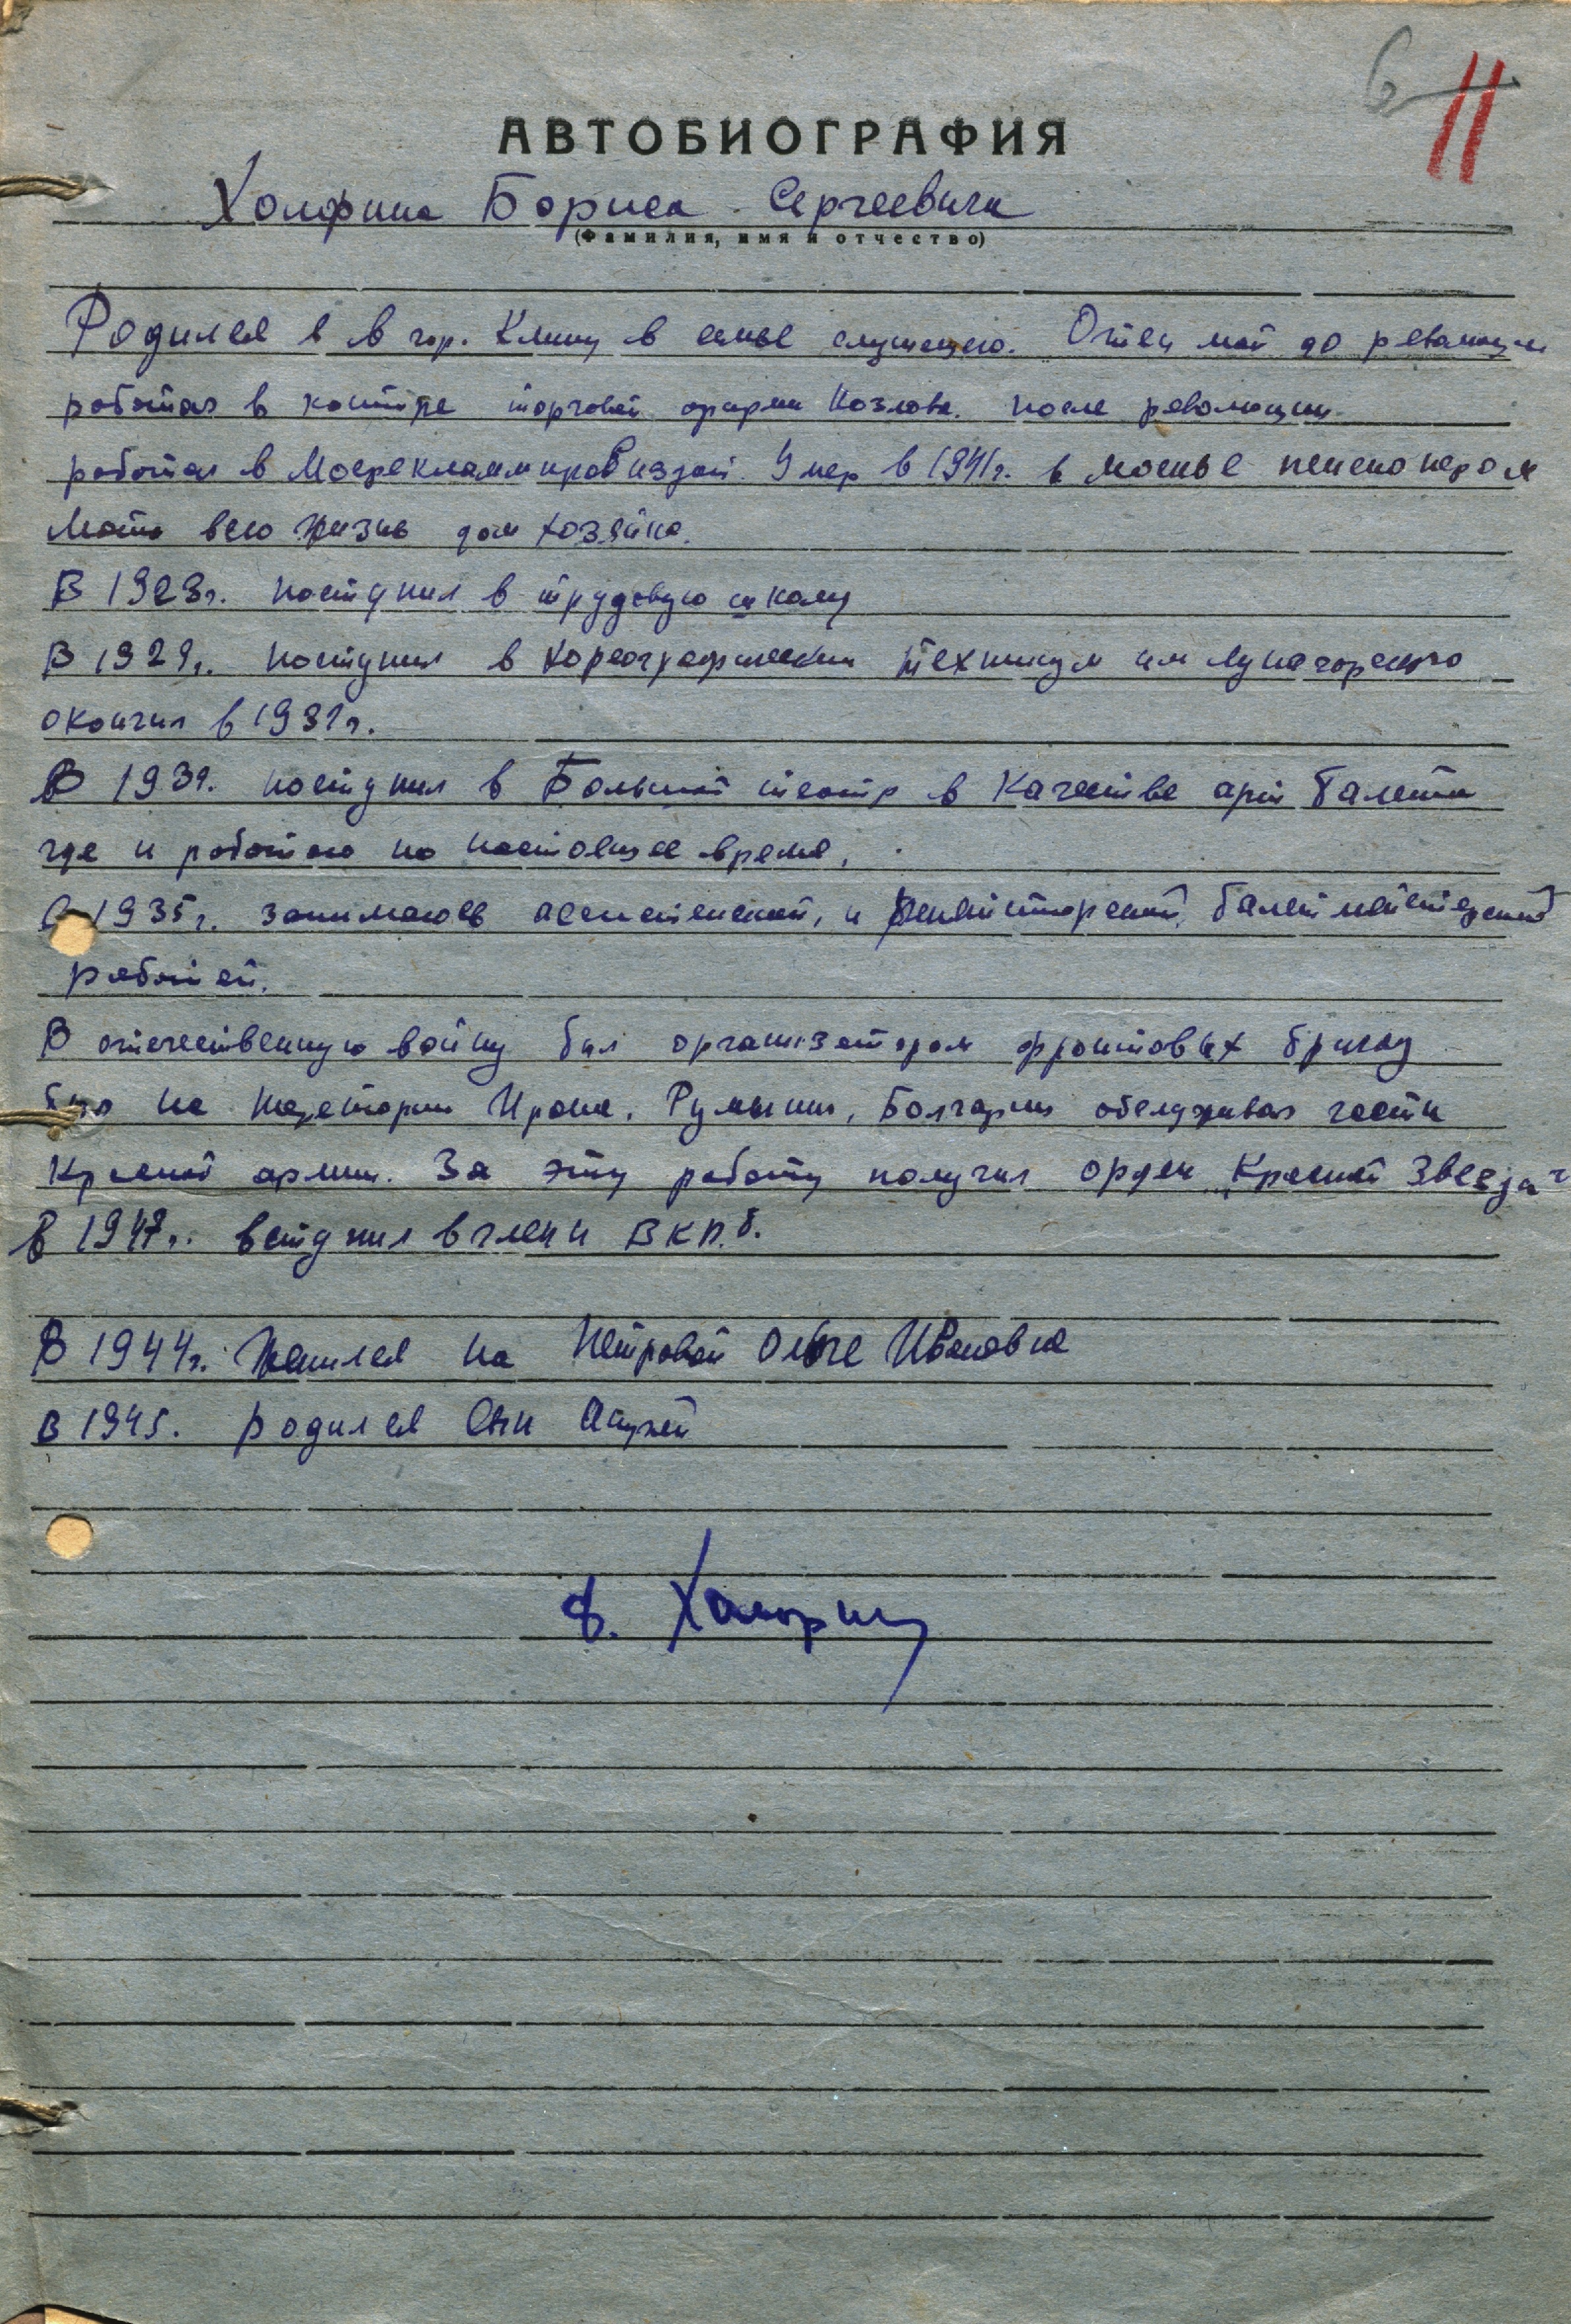 6 11
АВТОБИОГРАФИЯ
Холфина Бориса Сергеевича
(Фамилия, имя и отчество)
Родился я в гор. Клину в семье служащего. Отец мой до революции
работал в конторе торговой фирмы Козлова. после революции
работал в Мосрекламм Умер в 1941г. в Москве пенсионером
Мать всю жизнь дом хозяйка.
В 1923г. поступил в трудовую школу
В 1929г. поступил в хореографический техникум им Луначарского
окончил в 1931г.
В 1931. поступил в Большой театр в качестве арт балета
где и работаю по настоящее время.
С 1935г. занимаюсь ассистенской, и репетиторской, балетмейстерской
работой.
В отечественную войну был организатором фронтовых бригад
был на территории Ирана, Румынии, Болгарии обслуживал части
Красной армии. За эту работу получил орден „Красной Звезды"
В 1947г. вступил в члены ВКП.б.
В 1944г. женился на Петровой Ольге Ивановне
В 1945. родился сын Андрей
Б. Холфин